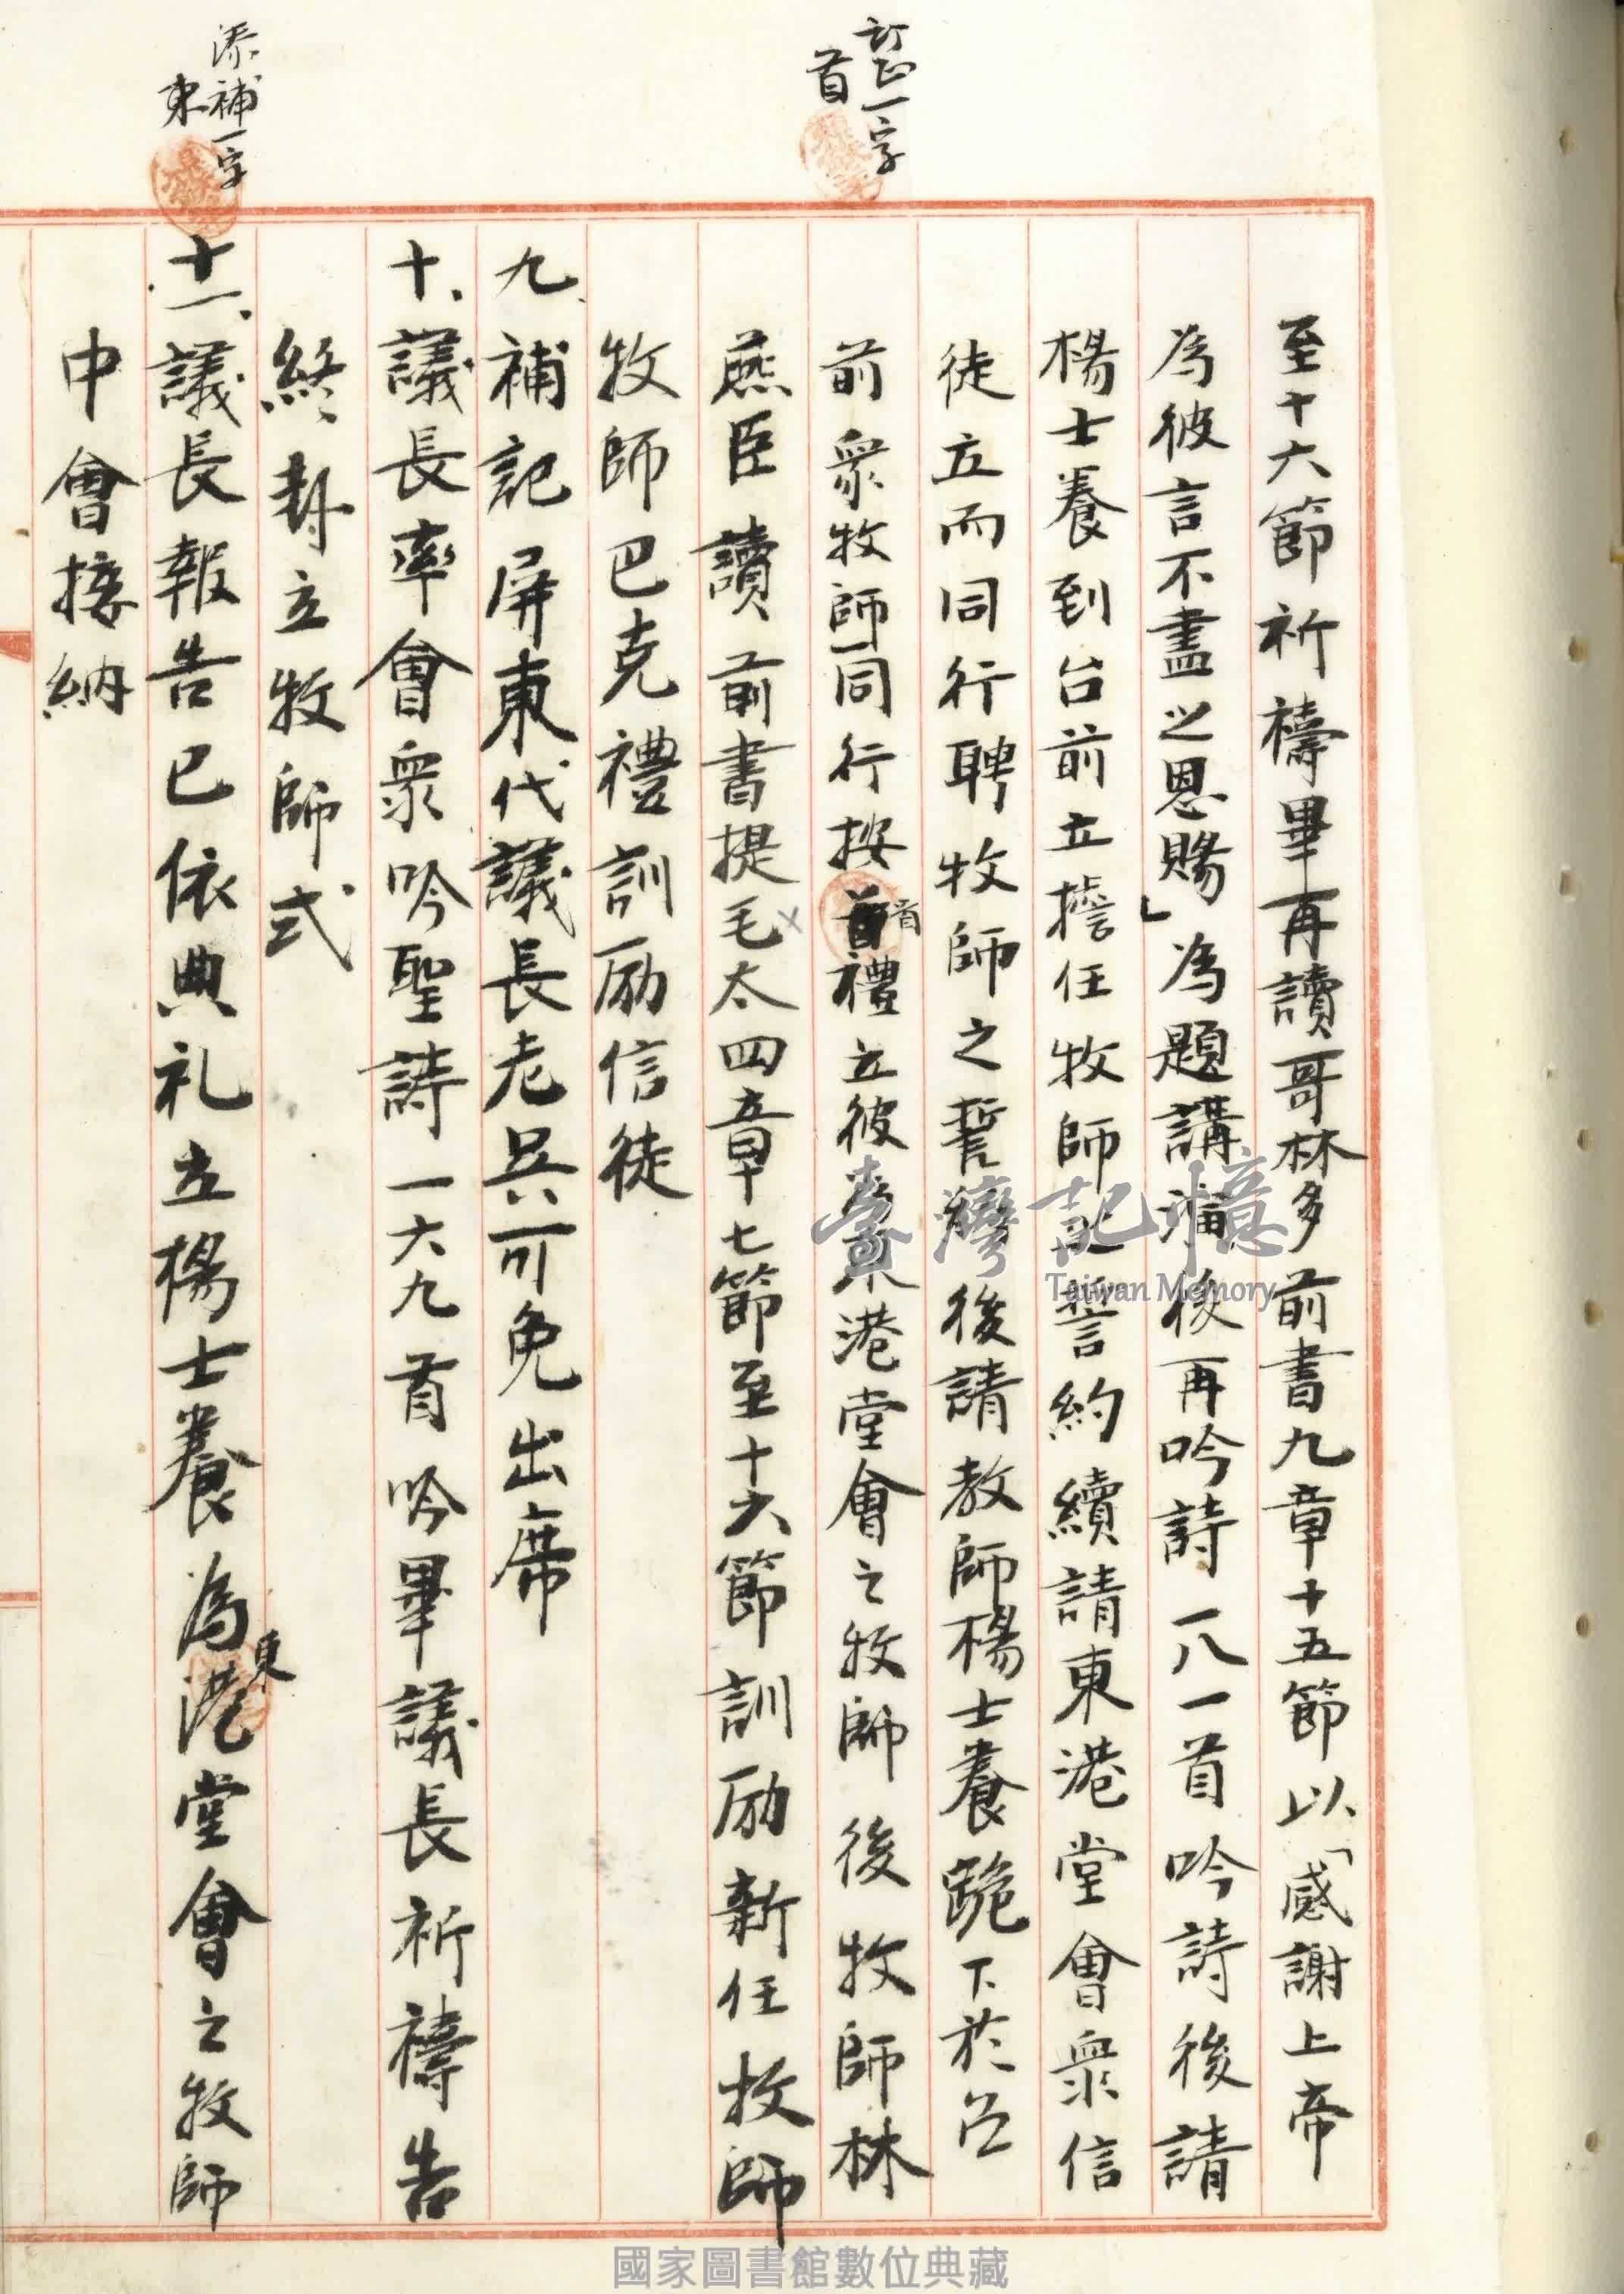 訂正一字
首
添補一字
東
至十六節祈禱畢再讀哥林多前書九章十五節以「感謝上帝
為彼言不盡之恩賜」為題講道後再吟詩一八一首吟詩後請
楊士養到台前立擔任牧師之誓約續請東港堂會眾信
徒立而同行聘牧師之誓約後請教師楊士養跪下於台
前眾牧師同行按首禮立彼為東港堂會之牧師後牧師林
燕臣讀前書提毛太四章七節至十六節訓勵新任牧師
牧師巴克禮訓勵信徒
九、補記屏東代議長老吳可免出席
十、議長率會眾吟聖詩一六九首吟畢議長祈禱告
終封立牧師式
十一、議長報告已依典礼立楊士養為東港堂會之牧師
中會接納
首
臺灣記憶
Taiwan Memory
國家圖書館數位典藏